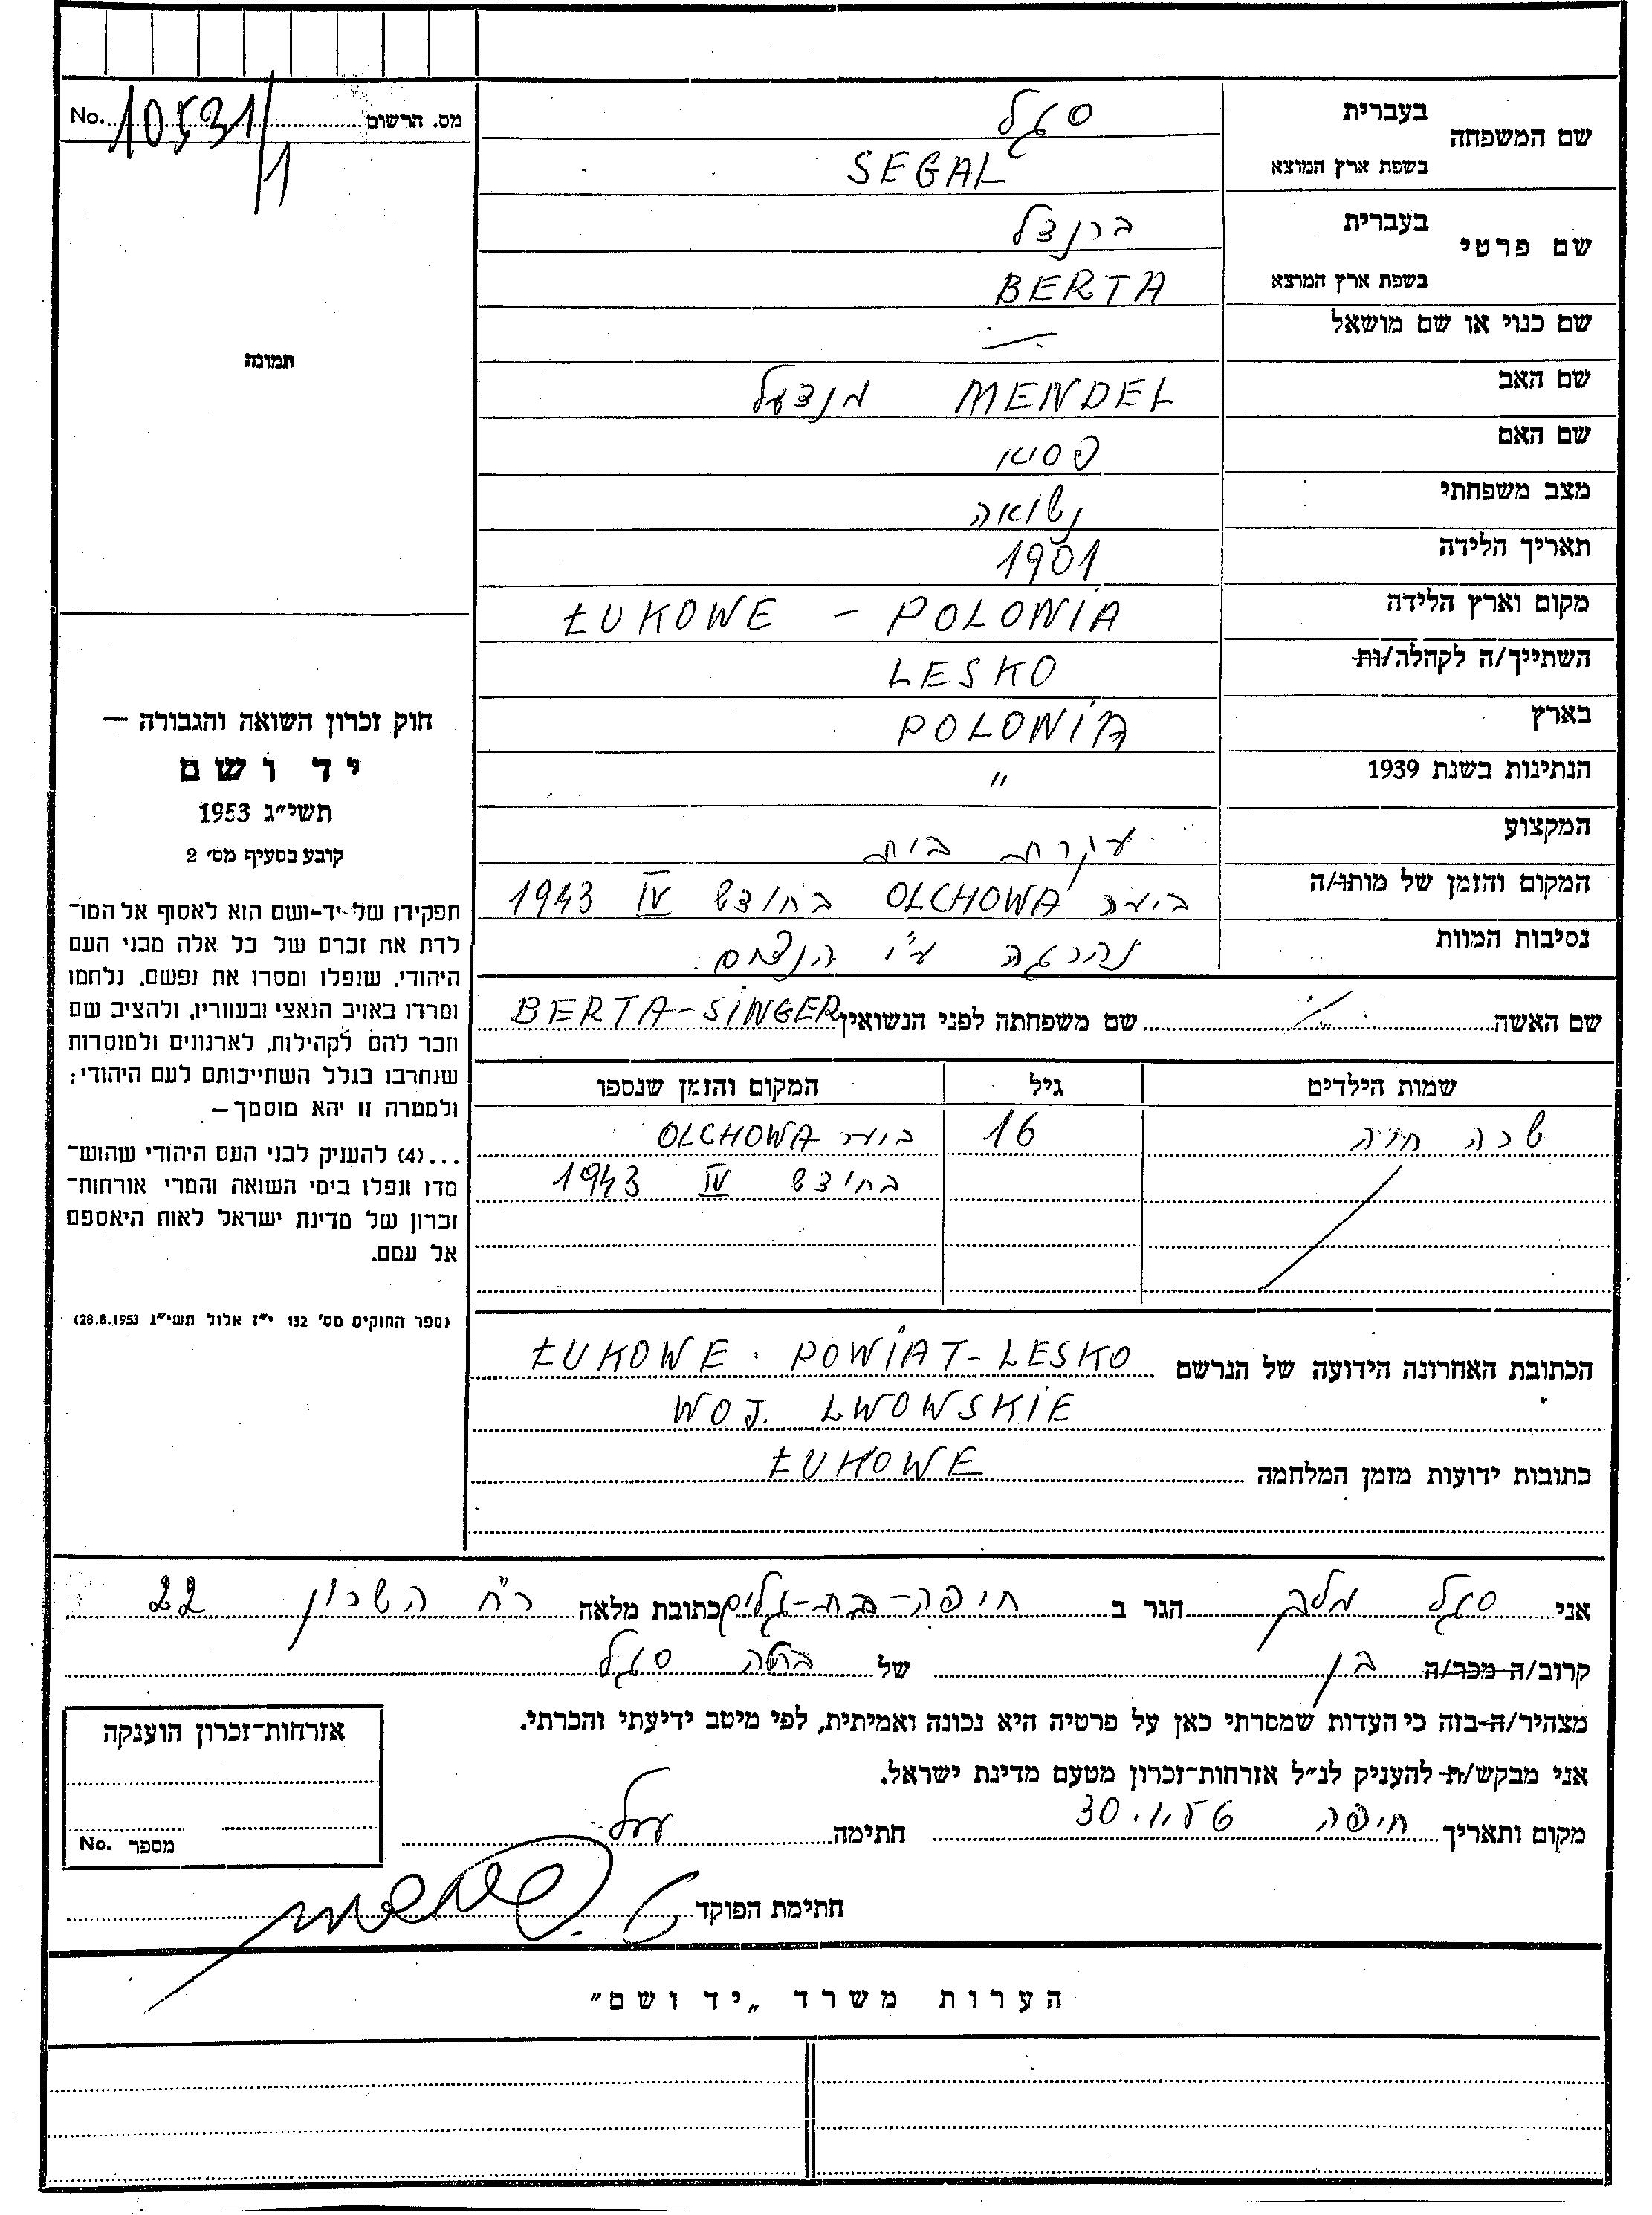 מס. הרשום 10531/1 No.
תמונה
שם המשפחה
בעברית סגל
בשפת ארץ המוצא SEGAL
שם פרטי
בעברית ברנצל
בשפת ארץ המוצא BERTA
שם כנוי או שם מושאל
שם האב MENDEL מנדל
שם האם פסיא
מצב משפחתי נשואה
תאריך הלידה 1901
מקום וארץ הלידה ŁUKOWE - POLONIA
השתייך/ה לקהלה/ות LESKO
בארץ POLONIA
הנתינות בשנת 1939 "
המקצוע עקרת בית
המקום והזמן של מותו/ה ביער OLCHOWA בחודש IV 1943
נסיבות המוות נהרגה ע"י הנצים.
שם האשה שם משפחתה לפני הנשואין BERTA-SINGER
שמות הילדים גיל המקום והזמן שנספו
שרה חיה 16 ביער OLCHOWA
בחודש IV 1943
הכתובת האחרונה הידועה של הנרשם ŁUKOWE . POWIAT-LESKO
WOJ. LWOWSKIE
כתובות ידועות מזמן המלחמה ŁUKOWE
חוק זכרון השואה והגבורה —
יד ושם
תשי"ג 1953
קובע בסעיף מס' 2
תפקידו של יד-ושם הוא לאסוף אל המו־
לדת את זכרם של כל אלה מבני העם
היהודי, שנפלו ומסרו את נפשם, נלחמו
ומרדו באויב הנאצי ובעוזריו, ולהציב שם
וזכר להם לקהילות, לארגונים ולמוסדות
שנחרבו בגלל השתייכותם לעם היהודי;
ולמטרה זו יהא מוסמך—
...(4) להעניק לבני העם היהודי שהוש־
מדו ונפלו בימי השואה והמרי אזרחות־
זכרון של מדינת ישראל לאות היאספם
אל עמם.
(ספר החוקים מס' 132 י"ז אלול תשי"ג 28.8.1953)
אני סגל מלך הגר ב חיפה-בת-גלים כתובת מלאה רח השרון 22
קרוב/ה מכר/ה בן של ברטה סגל
מצהיר/ה בזה כי העדות שמסרתי כאן על פרטיה היא נכונה ואמיתית, לפי מיטב ידיעתי והכרתי.
אני מבקש/ת להעניק לנ"ל אזרחות־זכרון מטעם מדינת ישראל.
מקום ותאריך חיפה 30.1.56 חתימה
חתימת הפוקד
אזרחות־זכרון הוענקה
מספר No.
הערות משרד „יד ושם"